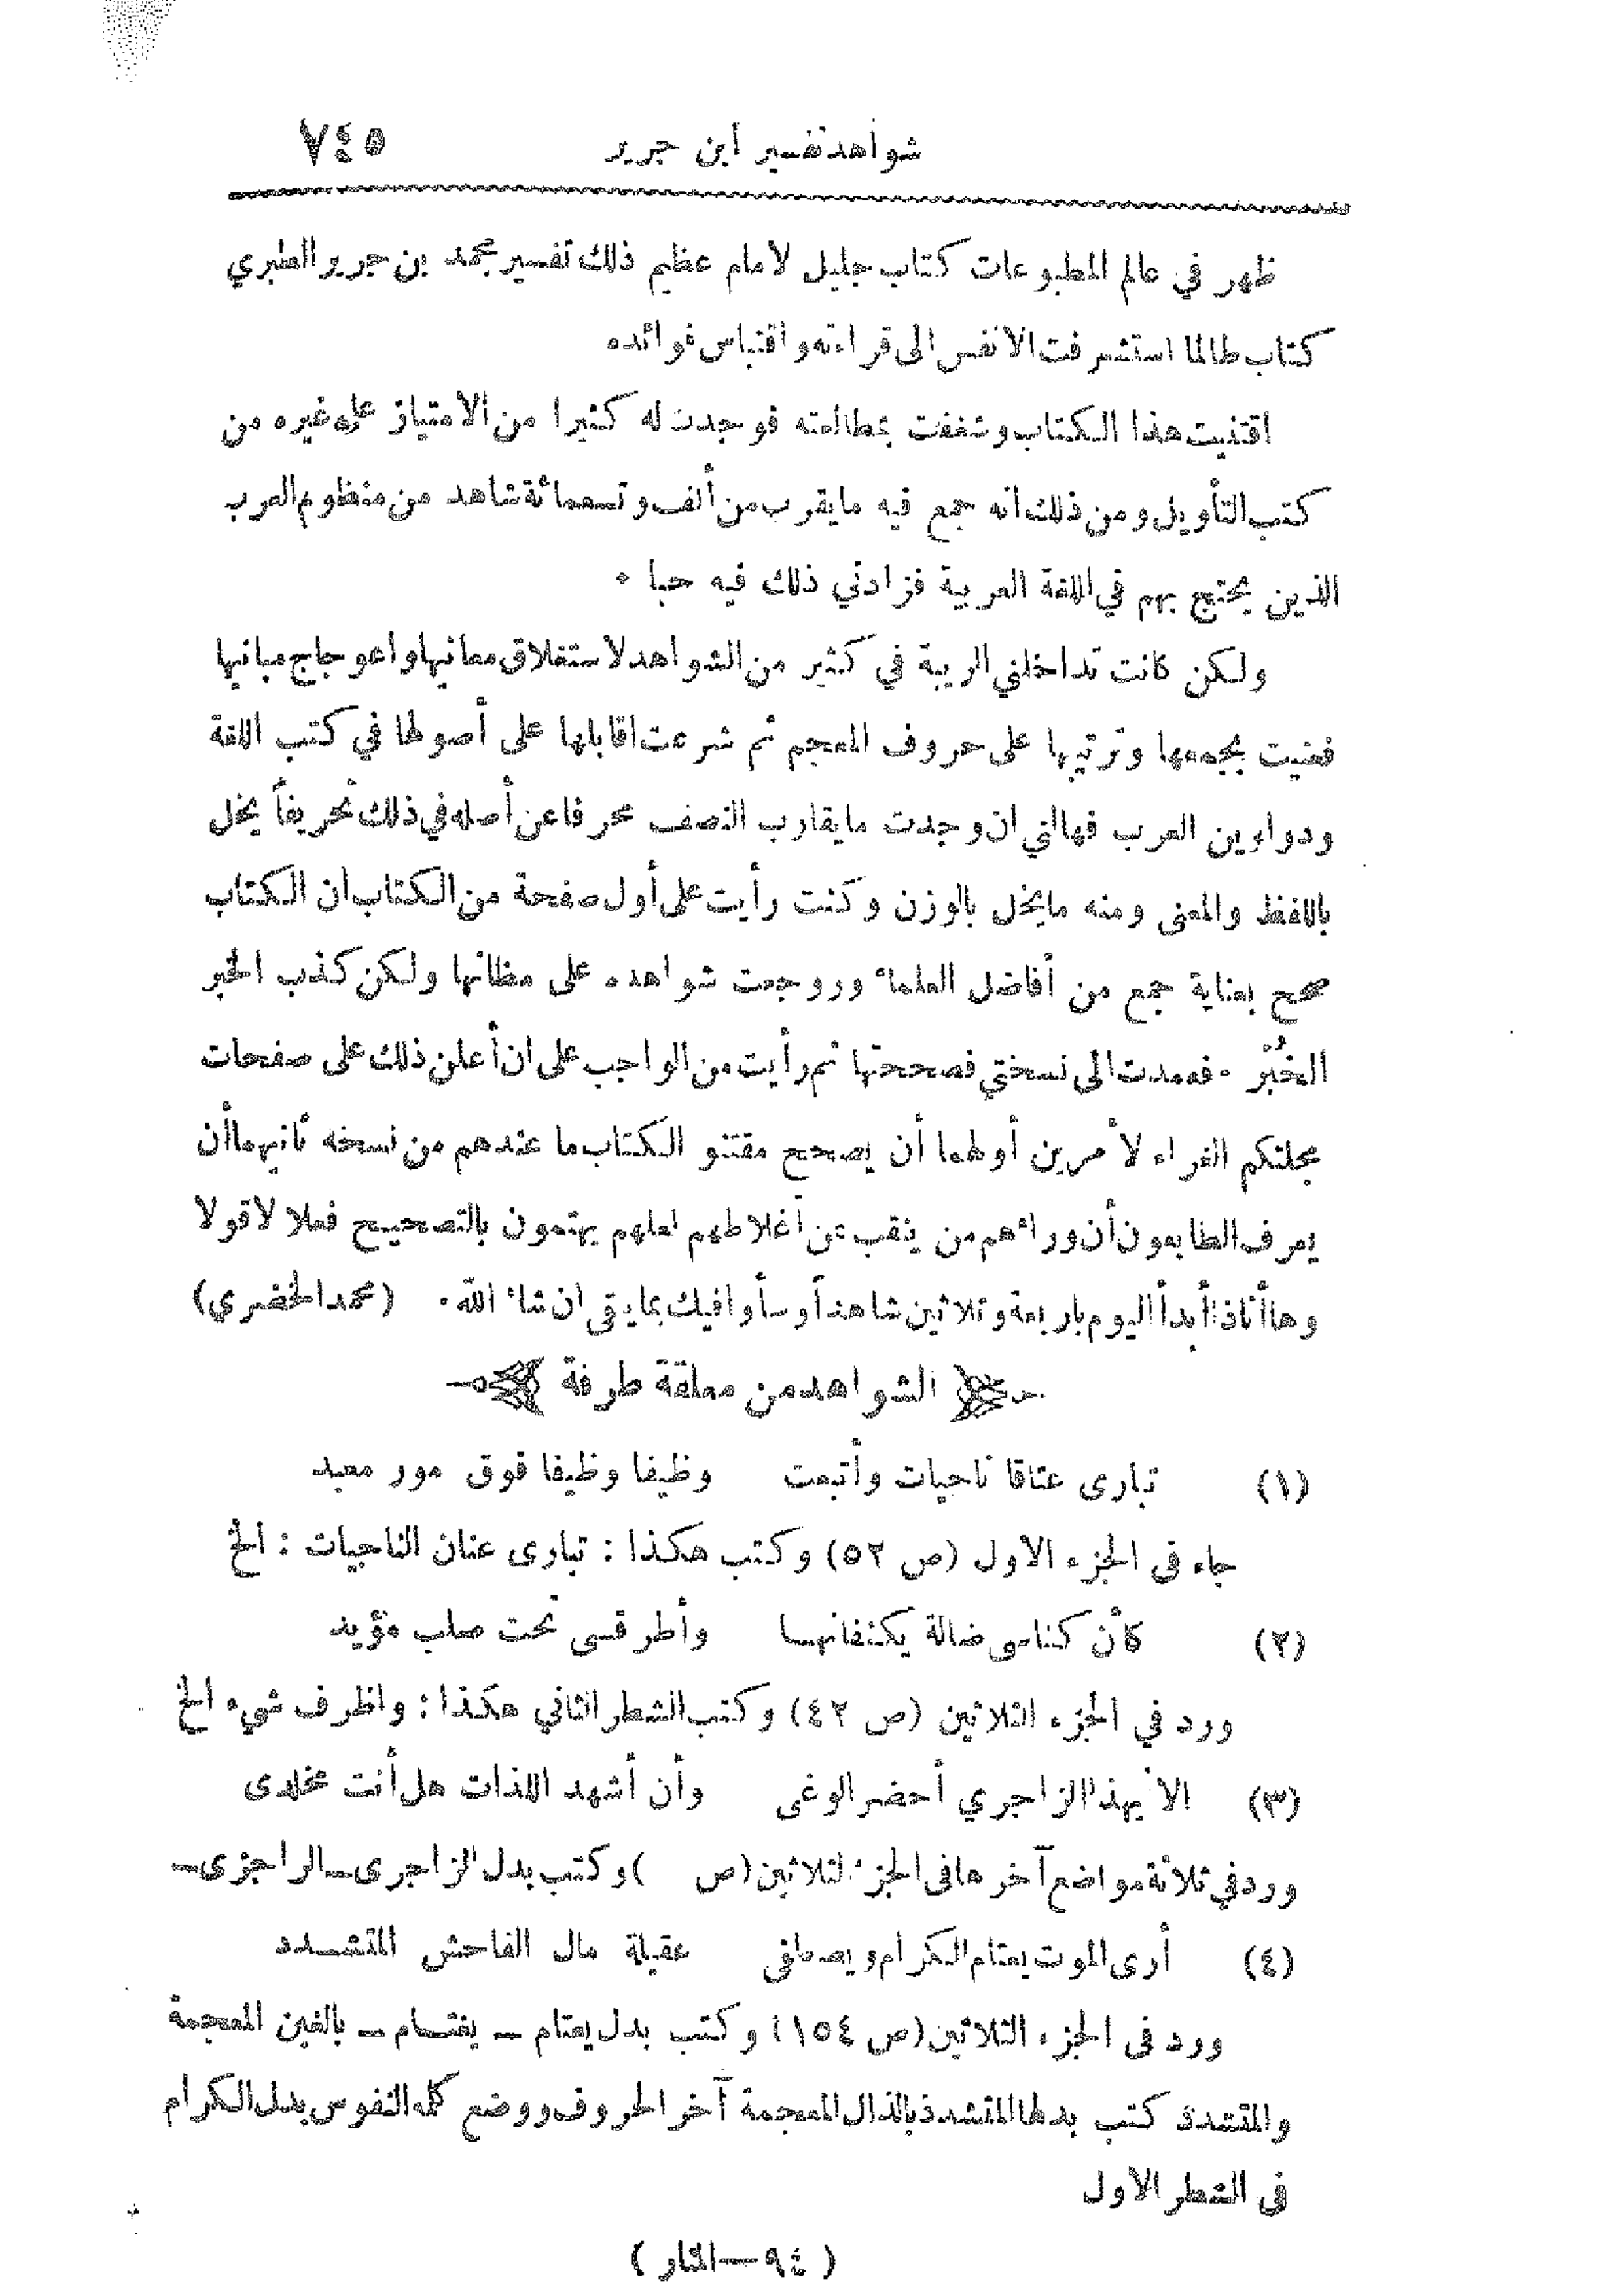 شواهد تفسير ابن جرير ٧٤٥
ظهر في عالم المطبوعات كتاب جليل لامام عظيم ذلك تفسير محمد بن جرير الطبري
كتاب طالما استشرفت الانفس الى قراءته واقتباس فوائده
اقتنيت هذا الكتاب وشغفت بمطالعته فوجدت له كثيرا من الامتياز على غيره من
كتب التأويل ومن ذلك انه جمع فيه ما يقرب من ألف وتسعمائة شاهد من منظوم العرب
الذين يحتج بهم في اللغة العربية فزادني ذلك فيه حبا .
ولكن كانت تداخلني الريبة في كثير من الشواهد لاستغلاق معانيها واعوجاج مبانيها
فعنيت بجمعها وترتيبها على حروف المعجم ثم شرعت اقابلها على أصولها في كتب اللغة
ودواوين العرب فهالني ان وجدت ما يقارب النصف محرفا عن أصله في ذلك تحريفاً يخل
باللفظ والمعنى ومنه ما يخل بالوزن وكنت رأيت على أول صفحة من الكتاب ان الكتاب
صحح بعناية جمع من أفاضل العلماء وروجعت شواهده على مظانها ولكن كذب الخبر
الخُبْر . فعمدت الى نسختي فصححتها ثم رأيت من الواجب على ان أعلن ذلك على صفحات
مجلتكم الغراء لأمرين أولهما أن يصحح مقتنو الكتاب ما عندهم من نسخه ثانيهما أن
يعرف الطابعون أن وراءهم من ينقب عن اغلاطهم لعلهم يهتمون بالتصحيح فعلا لا قولا
وها أناذا أبدأ اليوم باربعة وثلاثين شاهداً وسأوافيك بما بقي ان شاء الله . (محمد الخضري)
الشواهد من معلقة طرفة
(١) تبارى عتاقا ناجيات وأتبعت وظيفا وظيفا فوق مور معبد
جاء فى الجزء الاول (ص ٥٢) وكتب هكذا : تبارى عنان الناجيات : الخ
(٢) كأن كناسى ضالة يكنفانها وأطر قسى تحت صلب مؤيد
ورد في الجزء الثلاثين (ص ٤٢) وكتب الشطر الثاني هكذا : واظرف شيء الخ
(٣) الا أيهذا الزاجري أحضر الوغى وأن أشهد اللذات هل أنت مخلدى
ورد في ثلاثة مواضع آخرها فى الجزء الثلاثين (ص ) وكتب بدل الزاجرى ــ الراجزى ــ
(٤) أرى الموت يعتام الكرام ويصطفى عقيلة مال الفاحش المتشدد
ورد فى الجزء الثلاثين (ص ١٥٤) وكتب بدل يعتام ــ يغتام ــ بالغين المعجمة
والمتشدد كتب بدلها المتشدذ بالذال المعجمة آخر الحروف ووضع كلمة النفوس بدل الكرام
فى الشطر الاول
(٩٤ — المنار)